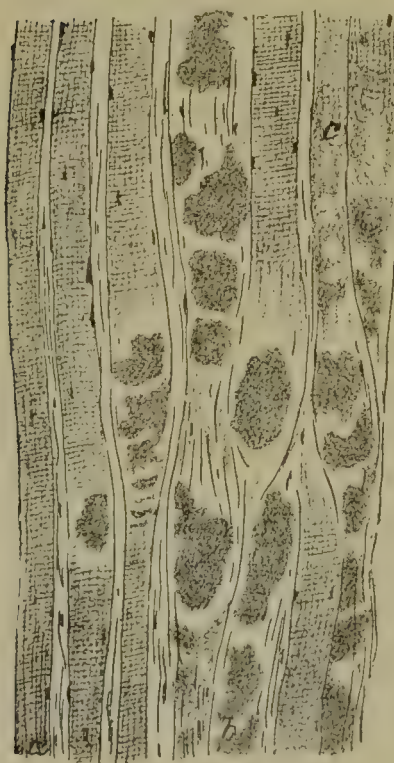 c
a
b